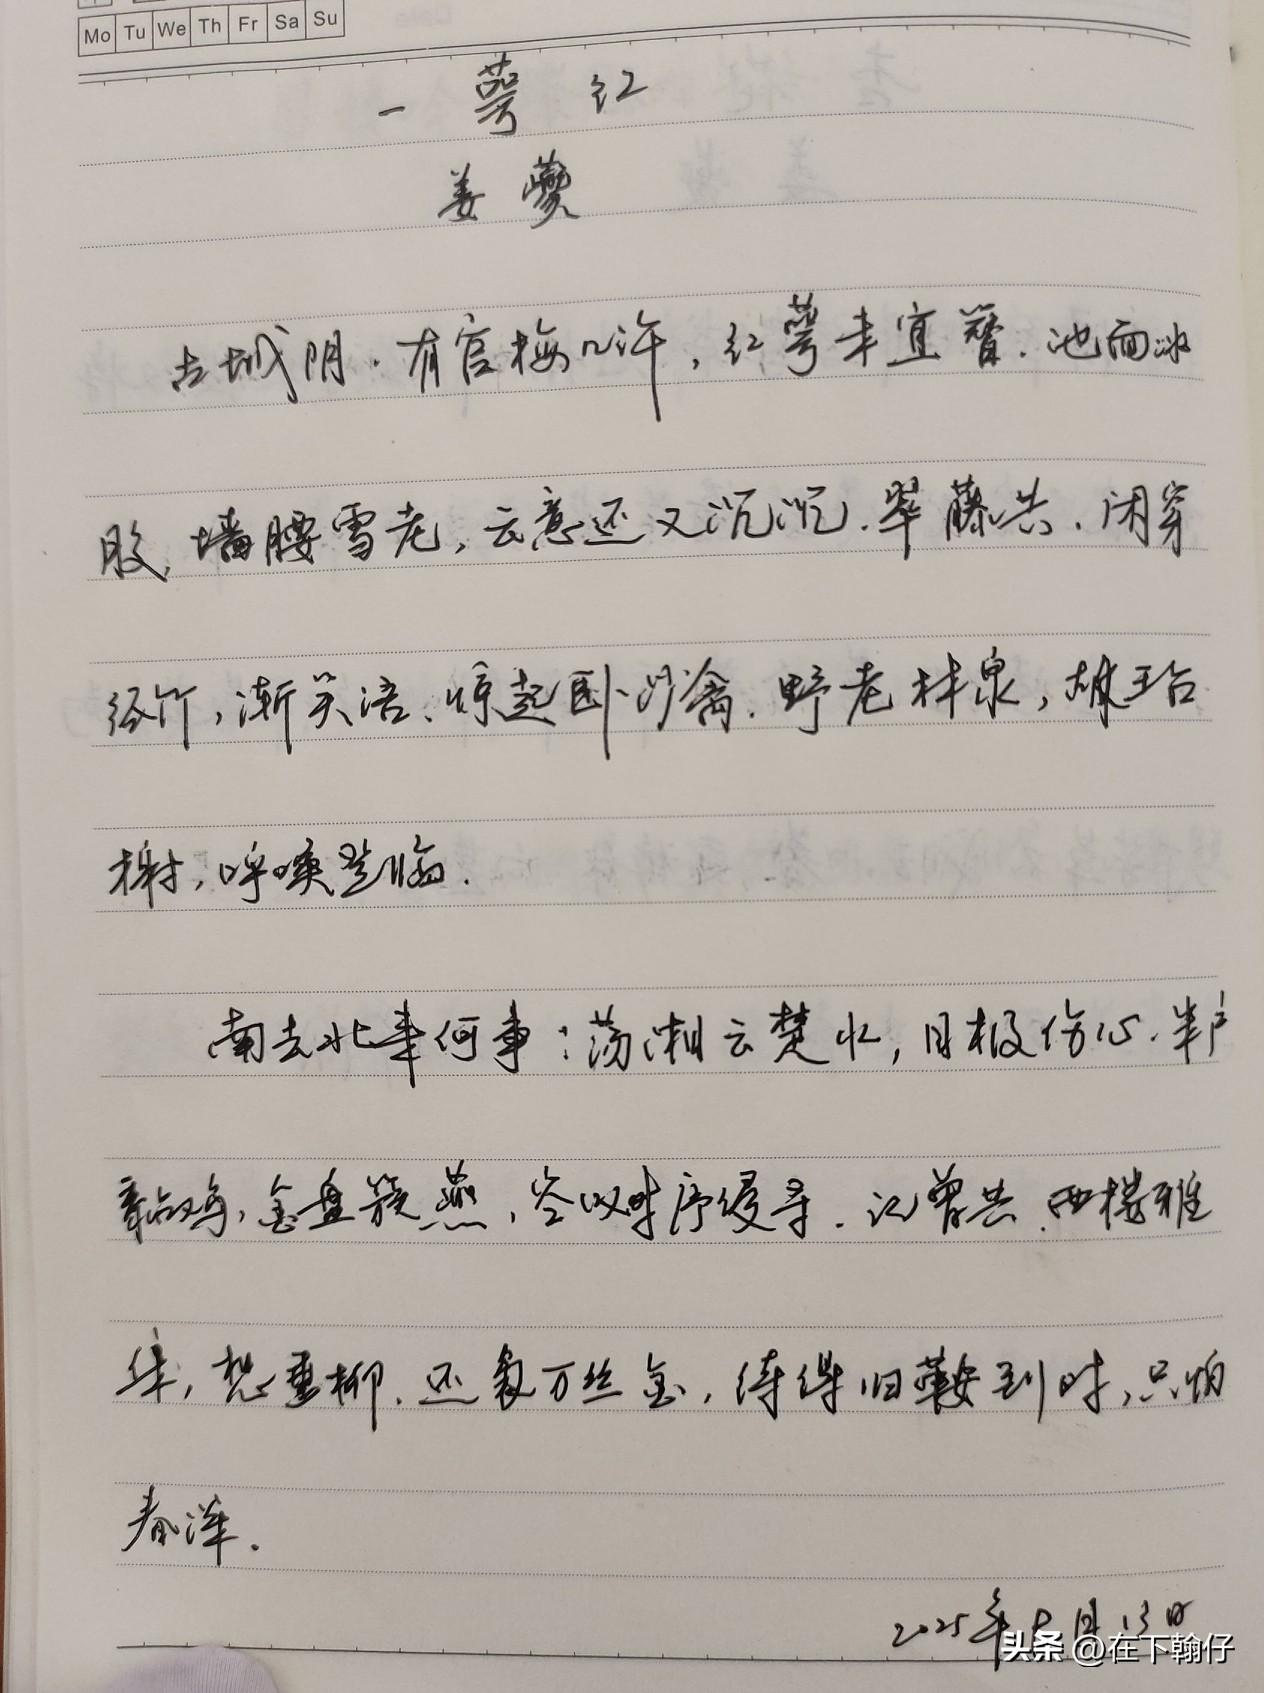 Mo Tu We Th Fr Sa Su
一萼红
姜夔
古城阴.有官梅几许,红萼未宜簪.池面冰
胶,墙腰雪老,云意还又沉沉.翠藤共.闲穿
径竹,渐笑语、惊起卧沙禽.野老林泉,故王台
榭,呼唤登临.
南去北来何事:荡湘云楚水,目极伤心.朱户
黏鸡,金盘簇燕,空叹时序侵寻.记曾共.西楼雅
集,想垂柳.还袅万丝金,待得归鞍到时,只怕
春深.
2025年5月13日
头条 @在下翰仔